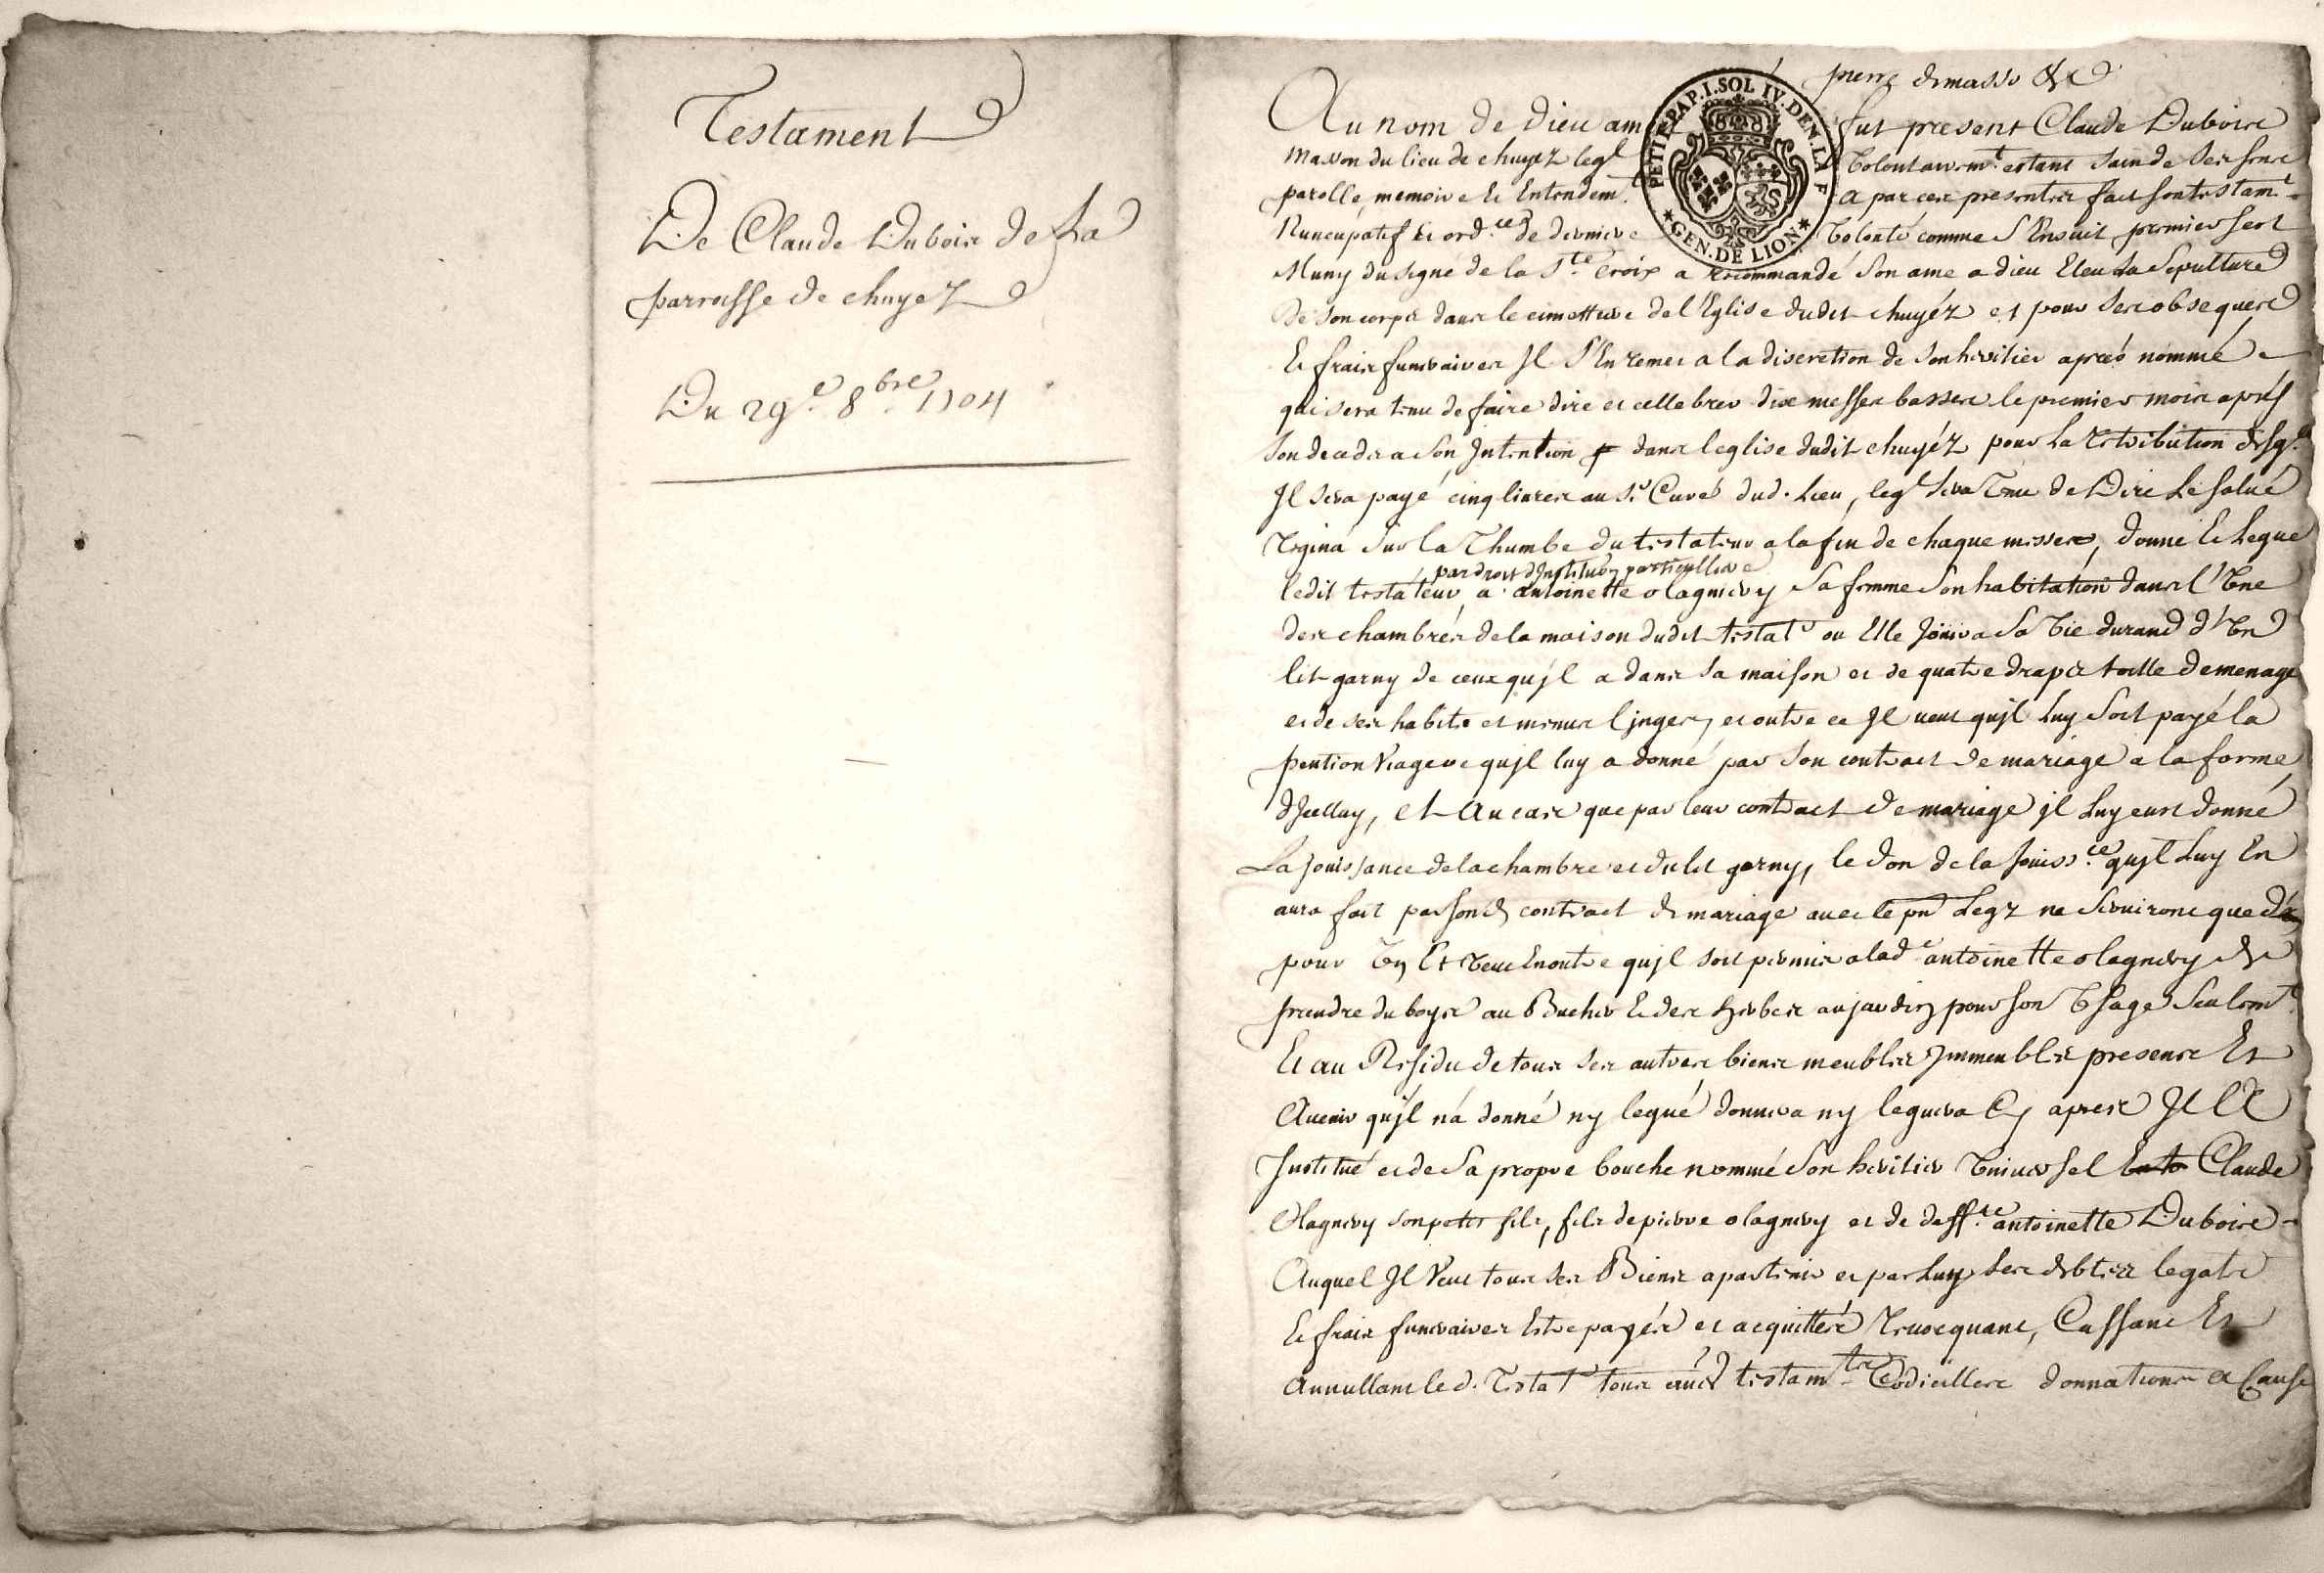 Testament
De Claude Dubois de La
parroisse de chuyez
Du 29e 8bre 1704
pierre demasso &c
PETIT.PAP.I.SOL IV.DEN.LA F
GEN.DE LION
Au nom de Dieu am fut present Claude Dubois
masson du lieu de chuyez leql volontairemt estant sain de ses sens
parolle, memoire et Entendemt a par ces presentes fait son testamt
Nuncupatif et ordce de derniere volonté comme s'Ensuit premier sest
Muny du signe de la Ste Croix a recommandé son ame a dieu Eleu sa sepulture
de son corps dans le cimettiere de l'Eglise dudit chuyéz et pour ses obseques
Et frais funeraires Il s'En remet a la discretion de son heritier aprés nommé
qui sera tenu de faire dire et cellebrer dix messes basses le premier mois aprés
son decedz a son Intention dans leglise dudit chuyéz pour la retribution desqles
Il sera payé cinq livres au Sr Curé dud. Lieu, leql sera tenu de Dire Le salué
regina sur la Thumbe du testateur a la fin de chaque messes, donne Et Legue
par droit d'Institu͠on particulliere
ledit testateur, a antoinette olagniery sa femme son habitation dans l'Une
des chambres de la maison dudit testatr ou Elle Joüira sa vie durand d'Un
lit garny de ceux qu'jl a dans sa maison et de quatre draps toille de menage
et de ses habits et menus linges, et outre ce Il veut qujl luy soit payé la
pention viagere qujl luy a donné par son contract de mariage a la forme
d'Jcelluy, et au cas que par leur contract de mariage jl Luy eust donné
La jouissance de la chambre et du lit garny, le don de la jouissce qujl Luy En
aura fait par sond contract de mariage avec le pnt Legz ne serviront que
pour Un Et veut En outre qujl soit permis a lade antoinette olagniery de
prendre du boys au Bucher Et des herbes au jardin pour son Usage seulemt
Et au Residu de tous ses autres biens meubles Immeubles presens Et
Avenir qu'jl n'a donné ny legué donnera ny leguera Cy apres Il
Institué et de sa propre bouche nommé son heritier Universel Claude
Olagniery son petit fils, fils de pierre olagniery et de deffte antoinette Dubois
Auquel Il Veut tous ses Biens apartenir et par Luy ses debtes legats
Et frais funeraires Estre payés et acquittés revocquant, Cassant Et
Annullant led. Testatr tous autres testamts Codicilles donnations a Cause